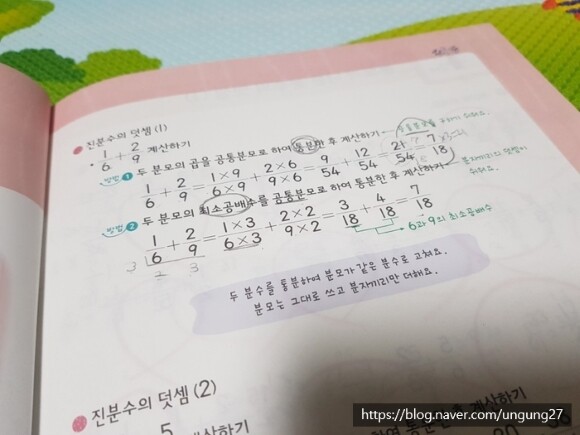 진분수의 덧셈 (1)
1/6 + 2/9 계산하기
방법 1 두 분모의 곱을 공통분모로 하여 통분한 후 계산하기
1/6 + 2/9 = 1×9/6×9 + 2×6/9×6 = 9/54 + 12/54 = 21/54 = 7/18
방법 2 두 분모의 최소공배수를 공통분모로 하여 통분한 후 계산하기
1/6 + 2/9 = 1×3/6×3 + 2×2/9×2 = 3/18 + 4/18 = 7/18
3 2 3
6과 9의 최소공배수
두 분수를 통분하여 분모가 같은 분수로 고쳐요.
분모는 그대로 쓰고 분자끼리만 더해요.
진분수의 덧셈 (2)
5 계산하기
https://blog.naver.com/ungung27